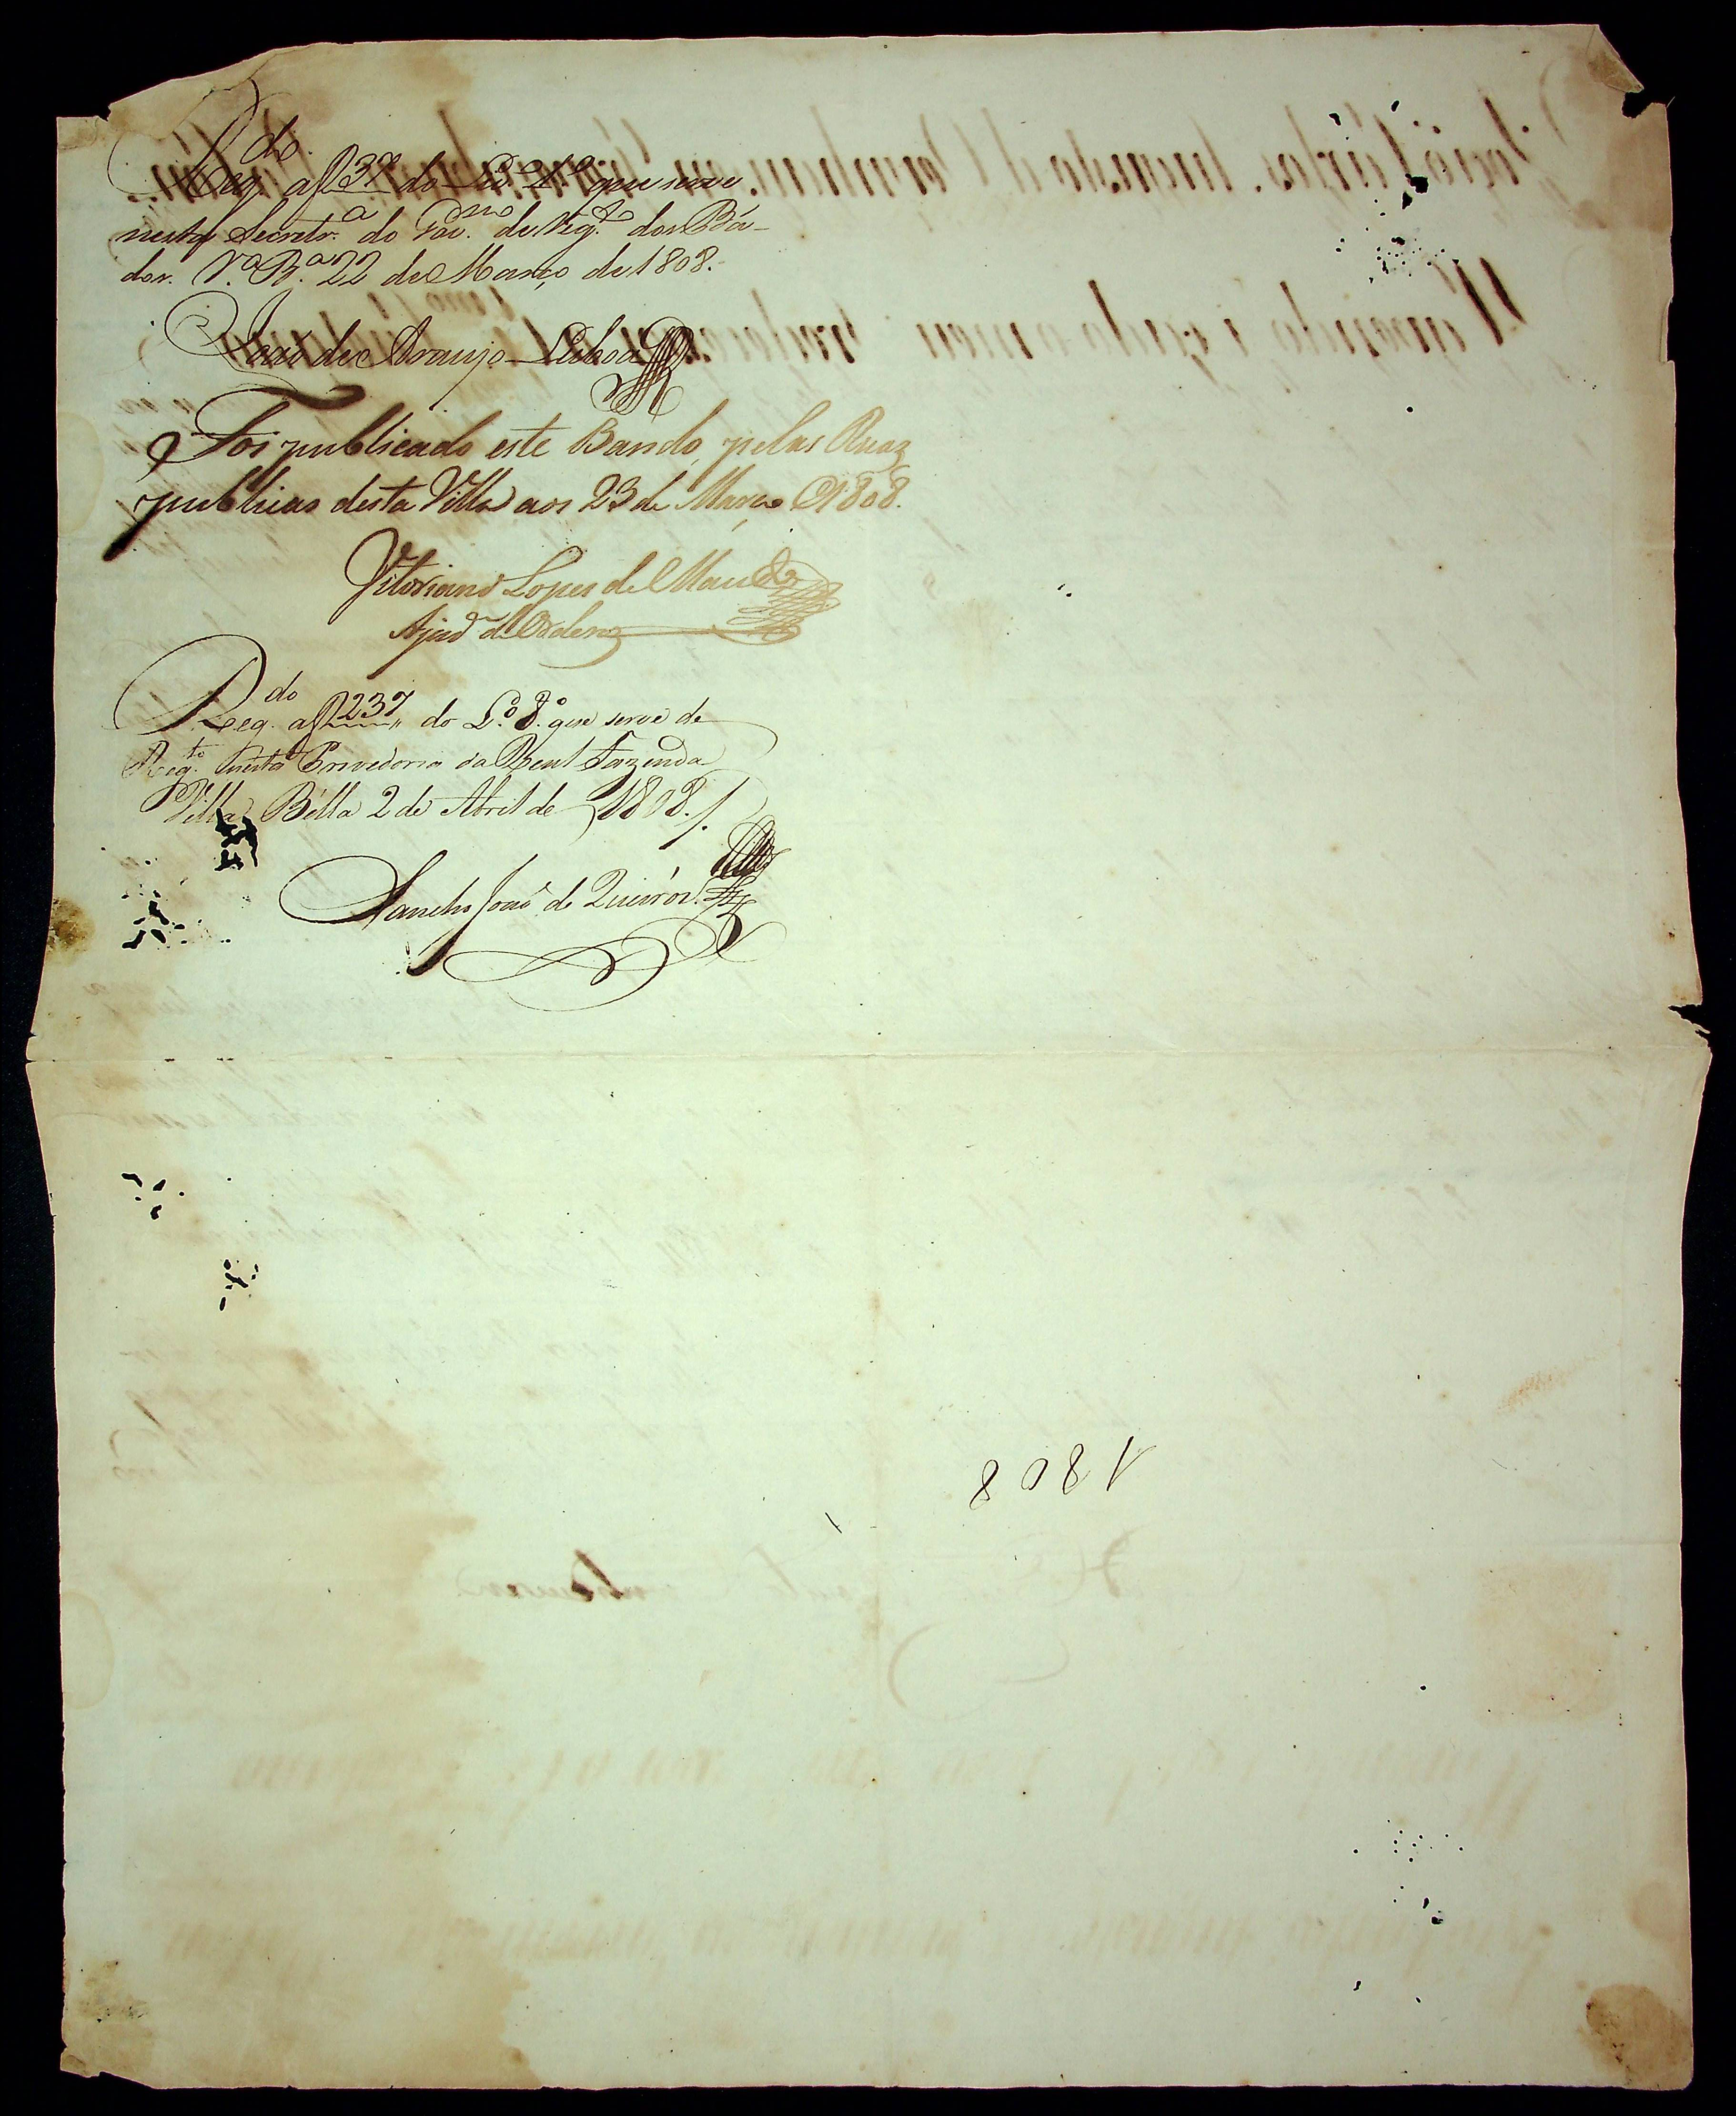 Reg.do a f 37 do Liv.o 1.o que serve
nesta Secretr.a do Gov.no de Reg.to dos Bã-
dos. V.a B.a 22 de Março de 1808.
João de Araujo Lisboa
Foi publicado este Bando, pelas Ruaz
publicas desta Villa aos 23 de Março d1808.
Vitoriano Lopes de
Ajud.e d'Ordenz
Reg.do a f 237 do L.o 8.o que serve de
Reg.to nesta Provedoria da Real Fazenda
Villa Bella 2 de Abril de 1808.
Sancho João de Queiros.
1808